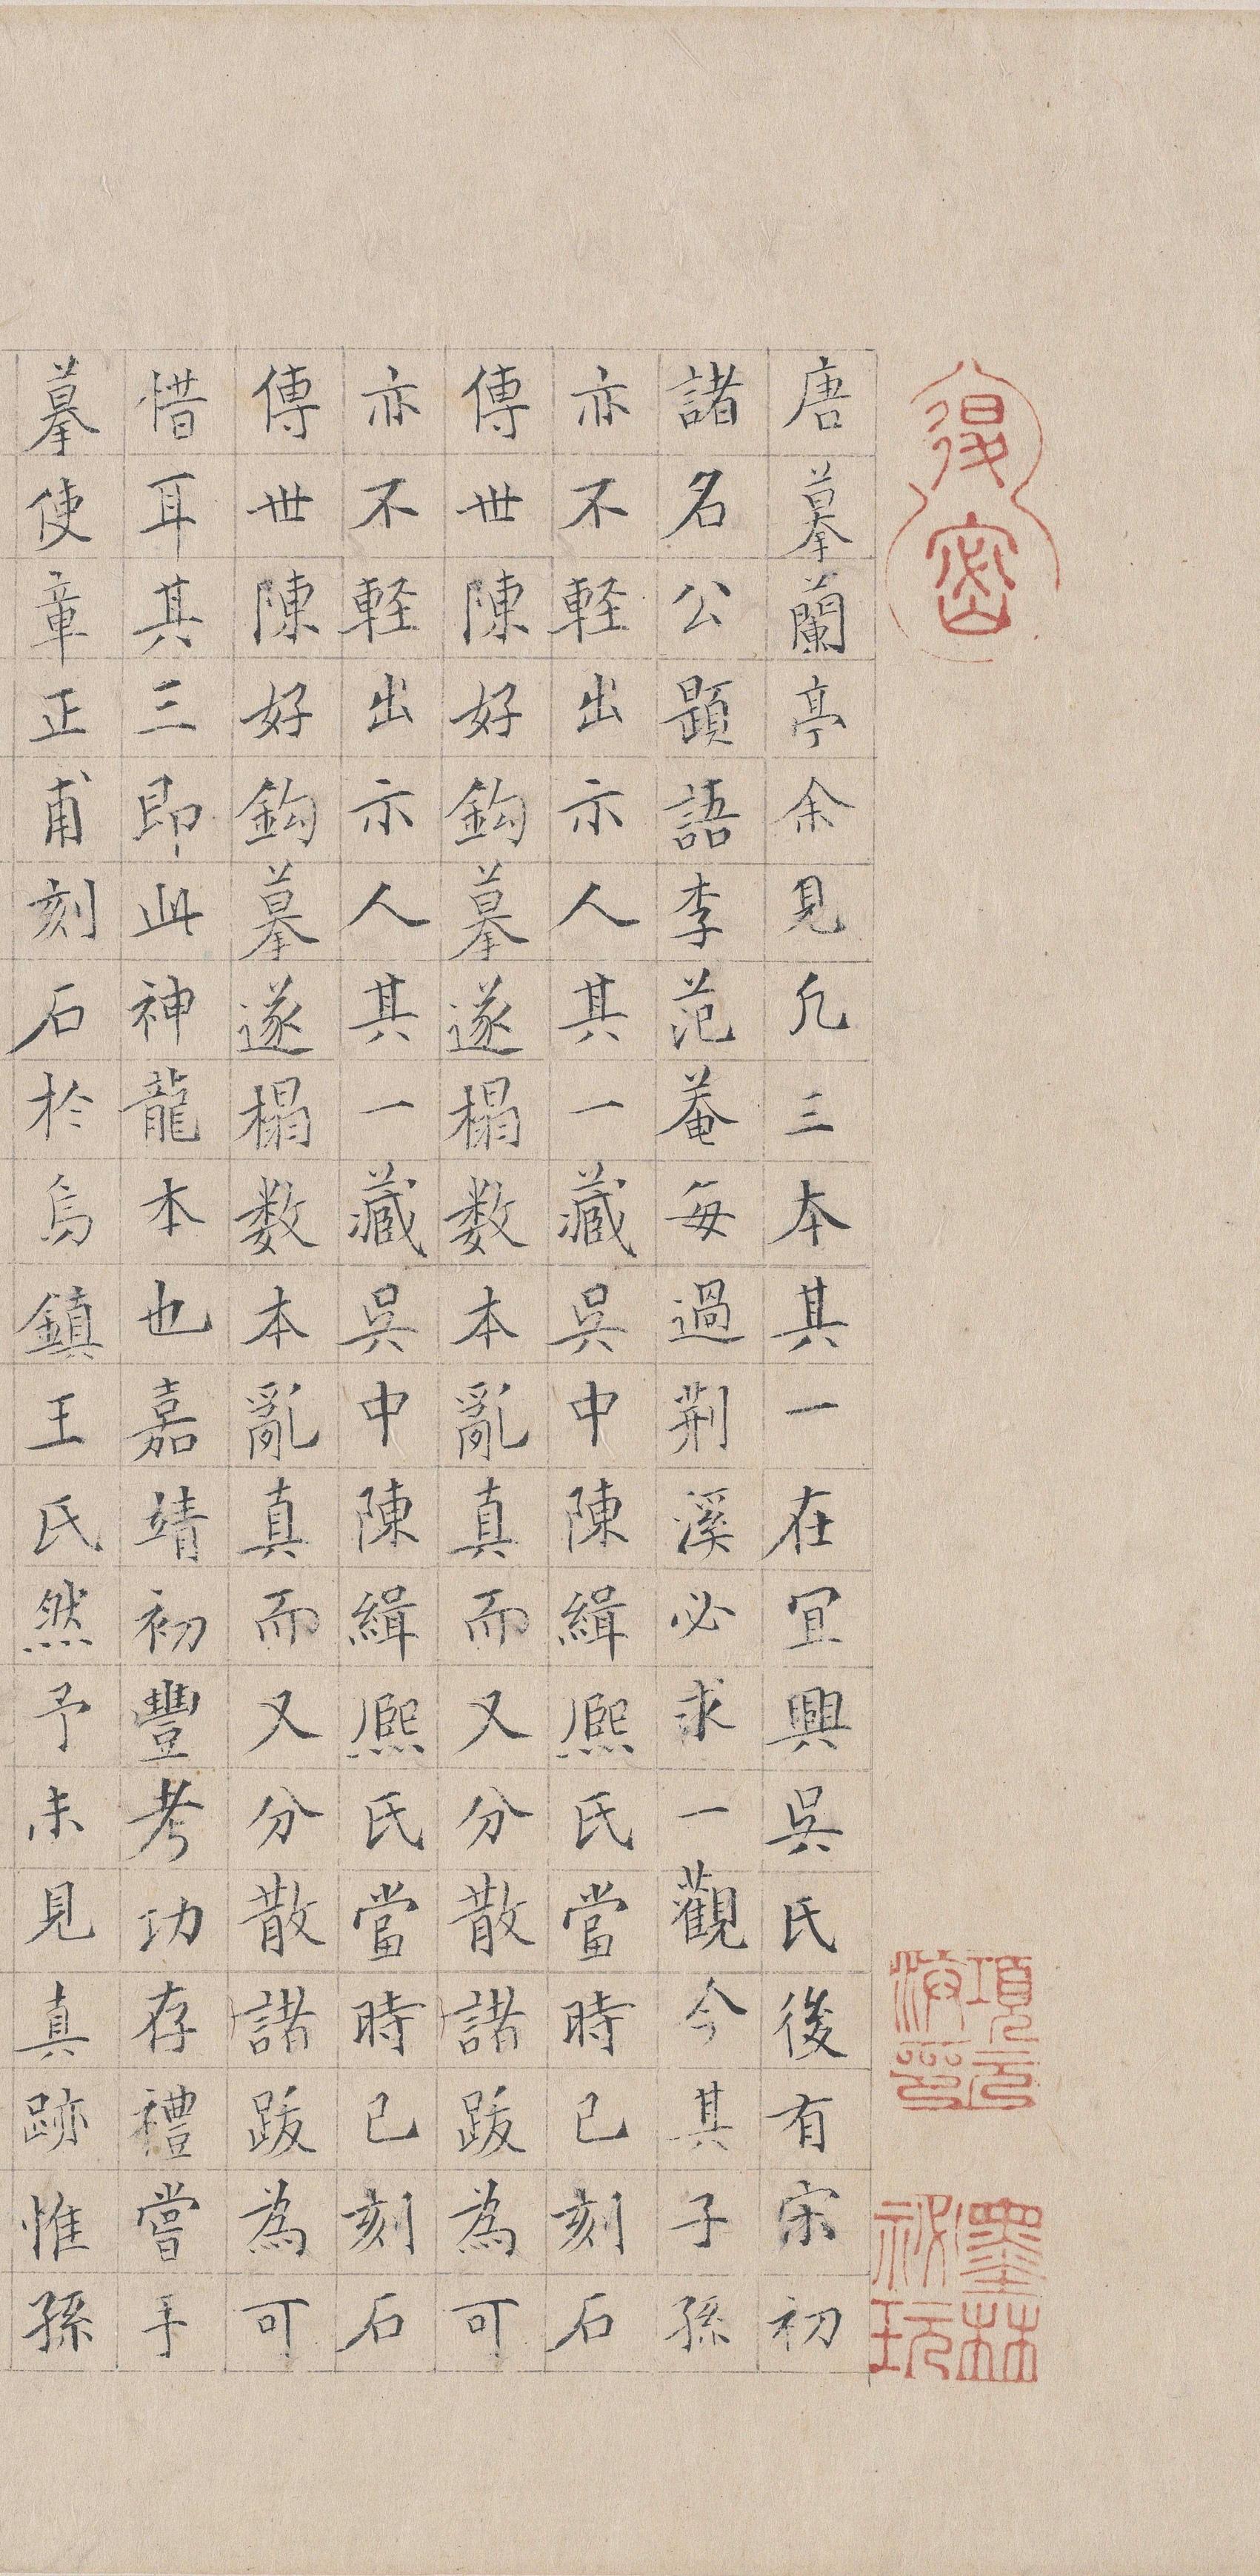 唐摹蘭亭余見凢三本其一在宜興吳氏後有宋初
諸名公題語李范菴每過荆溪必求一觀今其子孫
亦不軽出示人其一藏吳中陳緝熈氏當時已刻石
傳世陳好鈎摹遂榻数本亂真而又分散諸跋為可
亦不軽出示人其一藏吳中陳緝熈氏當時已刻石
傳世陳好鈎摹遂榻数本亂真而又分散諸跋為可
惜耳其三即此神龍本也嘉靖初豐考功存禮嘗手
摹使章正甫刻石於烏鎮王氏然予未見真跡惟孫
項元
墨林
祕玩